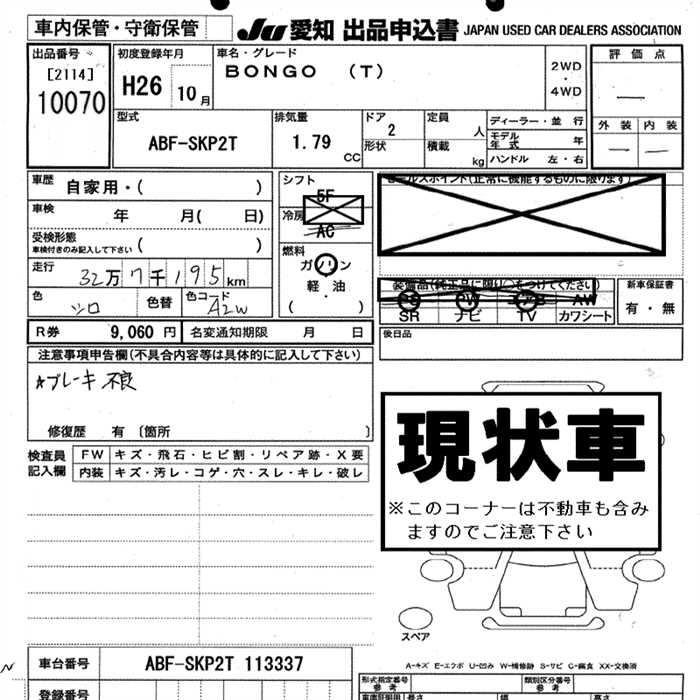 車内保管・守衛保管
JU 愛知 出品申込書 JAPAN USED CAR DEALERS ASSOCIATION
出品番号
[2114]
10070
初度登録年月
H26 10月
車名・グレード
BONGO (T)
2WD
・
4WD
評価点
—
外装 内装
— —
型式
ABF-SKP2T
排気量
1.79 CC
ドア
2
形状
定員 人
積載 kg
ディーラー・並行
モデル年式 年
ハンドル 左・右
車歴 自家用・( )
車検 年 月( 日)
受検形態
車検付きのみ記入して下さい ( )
走行 32万7千195km
色 シロ 色替 色コード A2W
R券 9,060円 名変通知期限 月 日
シフト
5F
冷房
AC
燃料
ガソリン
軽・油
( )
セールスポイント(正常に機能するものに限ります)
装備品(純正品に限り○をつけてください)
AW
SR ナビ TV カワシート
新車保証書
有・無
後日品
注意事項申告欄(不具合内容等は具体的に記入して下さい)
☆ブレーキ不良
修復歴 有 〔箇所 〕
検査員記入欄
FW キズ・飛石・ヒビ割・リペア跡・X要
内装 キズ・汚レ・コゲ・穴・スレ・キレ・破レ
現状車
※このコーナーは不動車も含み
ますのでご注意下さい
スペア
A-キズ E-エクボ U-凹み W-補修跡 S-サビ C-腐食 XX-交換済
車台番号 ABF-SKP2T 113337
登録番号
型式指定番号
参考
類別区分番号
参考
長さ 幅 高さ